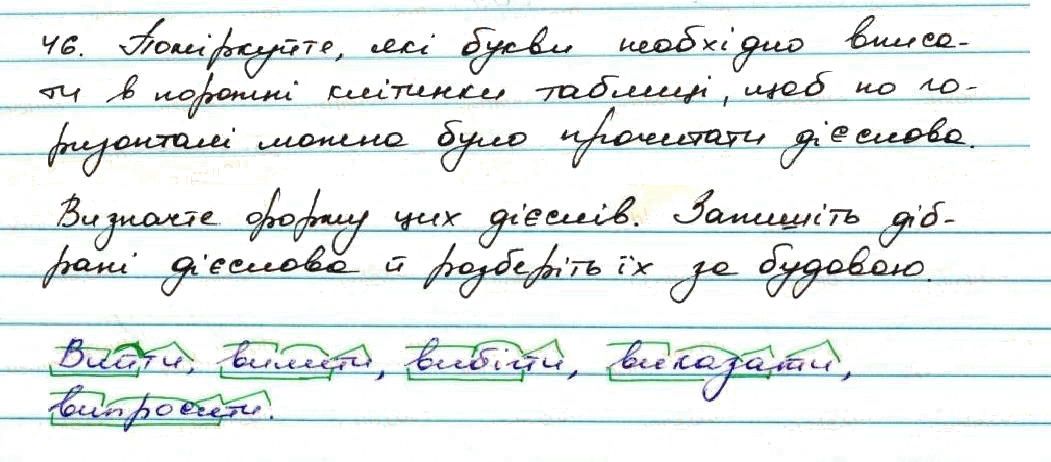 46. Поміркуйте, які букви необхідно вписа-
ти в порожні клітинки таблиці, щоб по го-
ризонталі можна було прочитати дієслова.
Визначте форму цих дієслів. Запишіть діб-
рані дієслова й розберіть їх за будовою.
Вийти, вилити, вибігти, виказати,
випросити.